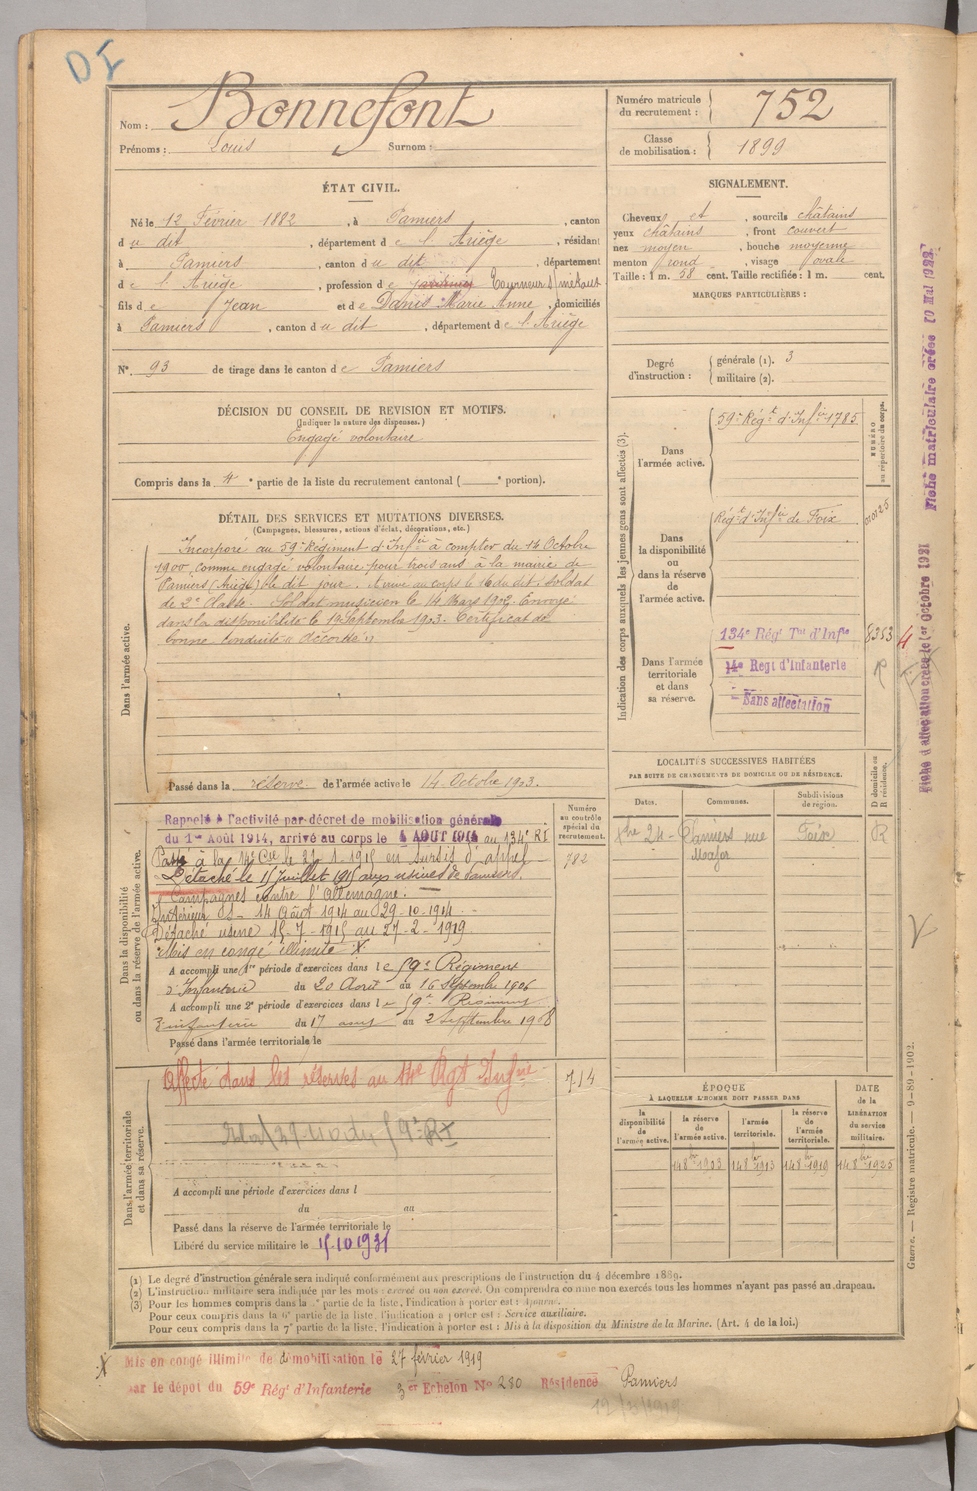 DI
Nom : Bonnefont
Prénoms : Louis Surnom :
Numéro matricule du recrutement : 752
Classe de mobilisation : 1899
ÉTAT CIVIL.
Né le 12 Février 1882, à Pamiers, canton
d u dit, département d e l'Ariège, résidant
à Pamiers, canton d u dit, département
d e l'Ariège, profession d e Tourneur s/ métaux
fils d e Jean et d e Denis Marie Anne, domiciliés
à Pamiers, canton d u dit, département d e l'Ariège
N°. 93 de tirage dans le canton d e Pamiers
SIGNALEMENT.
Cheveux et, sourcils châtains
yeux châtains, front couvert
nez moyen, bouche moyenne
menton rond, visage ovale
Taille : 1 m. 58 cent. Taille rectifiée : 1 m. cent.
MARQUES PARTICULIÈRES :
Degré d'instruction : générale (1). 3
militaire (2).
DÉCISION DU CONSEIL DE REVISION ET MOTIFS.
(Indiquer la nature des dispenses.)
Engagé volontaire
Compris dans la 4e partie de la liste du recrutement cantonal ( e portion).
DÉTAIL DES SERVICES ET MUTATIONS DIVERSES.
(Campagnes, blessures, actions d'éclat, décorations, etc.)
Dans l'armée active.
Incorporé au 59e Régiment d'Infie à compter du 14 Octobre
1900, comme engagé volontaire pour trois ans à la mairie de
Pamiers (Ariège) le dit jour. Arrivé au corps le 16 du dit. Soldat
de 2e Classe. Soldat musicien le 14 Mars 1902. Envoyé
dans la disponibilité le 19 Septembre 1903. Certificat de
bonne conduite "Accordé"
Passé dans la réserve de l'armée active le 14 Octobre 1903.
Indication des corps auxquels les jeunes gens sont affectés (3).
NUMÉRO au répertoire du corps.
Dans l'armée active.
59e Régt d'Infie 1785
Dans la disponibilité ou dans la réserve de l'armée active.
Régt d'Infie de Foix
Dans l'armée territoriale et dans sa réserve.
134e Régt Tal d'Infie 8353
14e Regt d'Infanterie
Sans affectation
Fiche matriculaire créée 10 Mai 1922
Fiche d'affectation créée le 1er Octobre 1921
LOCALITÉS SUCCESSIVES HABITÉES
PAR SUITE DE CHANGEMENTS DE DOMICILE OU DE RÉSIDENCE.
Dates. Communes. Subdivisions de région. D domicile ou R résidence.
Pamiers rue Foix R
Numéro au contrôle spécial du recrutement.
782
Dans la disponibilité ou dans la réserve de l'armée active.
Rappelé à l'activité par décret de mobilisation générale
du 1er Août 1914, arrivé au corps le 4 AOUT 1914 au 134e RI
Détaché le 15 Juillet 1915 aux usines de Pamiers.
Campagnes contre l'Allemagne :
Intérieur du 14 Août 1914 au 29-10-1914
Détaché usine 15-7-1915 au 27-2-1919
Mis en congé illimité X
A accompli une 1re période d'exercices dans l e 59e Régiment
d'Infanterie du 20 Aout au 16 Septembre 1906
A accompli une 2e période d'exercices dans l e 59e Régiment
d'infanterie du 17 aout au 2 Septembre 1908
Passé dans l'armée territoriale le
Dans l'armée territoriale et dans sa réserve.
Affecté dans les réserves au 14e Rgt Infrie
714
A accompli une période d'exercices dans l
du au
Passé dans la réserve de l'armée territoriale le
Libéré du service militaire le 15.10.1931
ÉPOQUE
À LAQUELLE L'HOMME DOIT PASSER DANS
la disponibilité de l'armée active.
la réserve de l'armée active.
l'armée territoriale.
la réserve de l'armée territoriale.
DATE de la LIBÉRATION du service militaire.
14 8bre 1903 14 8bre 1913 14 8bre 1919 14 8bre 1925
Guerre. — Registre matricule. — 9-89-1902.
(1) Le degré d'instruction générale sera indiqué conformément aux prescriptions de l'instruction du 4 décembre 1889.
(2) L'instruction militaire sera indiquée par les mots : exercé ou non exercé. On comprendra comme non exercés tous les hommes n'ayant pas passé au drapeau.
(3) Pour les hommes compris dans la 5e partie de la liste, l'indication à porter est : Ajourné.
Pour ceux compris dans la 6e partie de la liste, l'indication à porter est : Service auxiliaire.
Pour ceux compris dans la 7e partie de la liste, l'indication à porter est : Mis à la disposition du Ministre de la Marine. (Art. 4 de la loi.)
X Mis en congé illimité de démobilisation le 27 février 1919
par le dépôt du 59e Régt d'Infanterie 3 er Echelon No 280 Résidence Pamiers